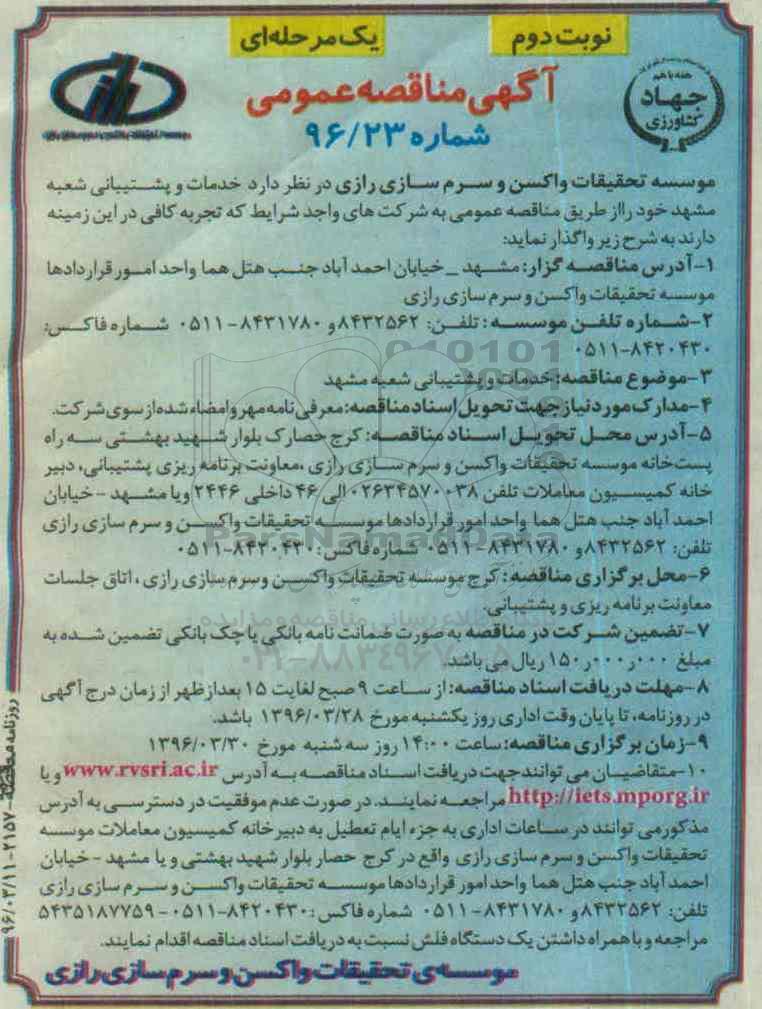 نوبت دوم
یک مرحله‌ای
آگهی مناقصه عمومی
شماره ۹۶/۲۳
هفته با هم
جهاد
کشاورزی
موسسه تحقیقات واکسن و سرم سازی رازی در نظر دارد خدمات و پشتیبانی شعبه
مشهد خود را از طریق مناقصه عمومی به شرکت های واجد شرایط که تجربه کافی در این زمینه
دارند به شرح زیر واگذار نماید:
۱-آدرس مناقصه گزار: مشهد _ خیابان احمد آباد جنب هتل هما واحد امور قراردادها
موسسه تحقیقات واکسن و سرم سازی رازی
۲-شماره تلفن موسسه: تلفن: ۸۴۳۲۵۶۲ و ۸۴۳۱۷۸۰-۰۵۱۱ شماره فاکس:
۸۴۲۰۴۳۰-۰۵۱۱
۳-موضوع مناقصه: خدمات و پشتیبانی شعبه مشهد
۴-مدارک مورد نیاز جهت تحویل اسناد مناقصه: معرفی نامه مهر و امضاء شده از سوی شرکت.
۵-آدرس محل تحویل اسناد مناقصه: کرج حصارک بلوار شهید بهشتی سه راه
پست خانه موسسه تحقیقات واکسن و سرم سازی رازی ،معاونت برنامه ریزی پشتیبانی، دبیر
خانه کمیسیون معاملات تلفن ۰۲۶۳۴۵۷۰۰۳۸ الی ۴۶ داخلی ۲۴۴۶ و یا مشهد - خیابان
احمد آباد جنب هتل هما واحد امور قراردادها موسسه تحقیقات واکسن و سرم سازی رازی
تلفن: ۸۴۳۲۵۶۲ و ۸۴۳۱۷۸۰-۰۵۱۱ شماره فاکس: ۸۴۲۰۴۳۰-۰۵۱۱
۶-محل برگزاری مناقصه: کرج موسسه تحقیقات واکسن و سرم سازی رازی ، اتاق جلسات
معاونت برنامه ریزی و پشتیبانی.
۷-تضمین شرکت در مناقصه به صورت ضمانت نامه بانکی یا چک بانکی تضمین شده به
مبلغ ۱۵۰٫۰۰۰٫۰۰۰ ریال می باشد.
۸-مهلت دریافت اسناد مناقصه: از ساعت ۹ صبح لغایت ۱۵ بعدازظهر از زمان درج آگهی
در روزنامه، تا پایان وقت اداری روز یکشنبه مورخ ۱۳۹۶/۰۳/۲۸ باشد.
۹-زمان برگزاری مناقصه: ساعت ۱۴:۰۰ روز سه شنبه مورخ ۱۳۹۶/۰۳/۳۰
۱۰-متقاضیان می توانند جهت دریافت اسناد مناقصه به آدرس www.rvsri.ac.ir و یا
http://iets.mporg.ir مراجعه نمایند. در صورت عدم موفقیت در دسترسی به آدرس
مذکور می توانند در ساعات اداری به جزء ایام تعطیل به دبیرخانه کمیسیون معاملات موسسه
تحقیقات واکسن و سرم سازی رازی واقع در کرج حصار بلوار شهید بهشتی و یا مشهد - خیابان
احمد آباد جنب هتل هما واحد امور قراردادها موسسه تحقیقات واکسن و سرم سازی رازی
تلفن: ۸۴۳۲۵۶۲ و ۸۴۳۱۷۸۰-۰۵۱۱ شماره فاکس: ۸۴۲۰۴۳۰-۰۵۱۱-۵۴۳۵۱۸۷۷۵۹
مراجعه و با همراه داشتن یک دستگاه فلش نسبت به دریافت اسناد مناقصه اقدام نمایند.
موسسه‌ی تحقیقات واکسن و سرم سازی رازی
ParsNamadData
پایگاه اطلاع رسانی مناقصه و مزایده
۰۲۱-۸۸۳۴۹۶۷۰-۵